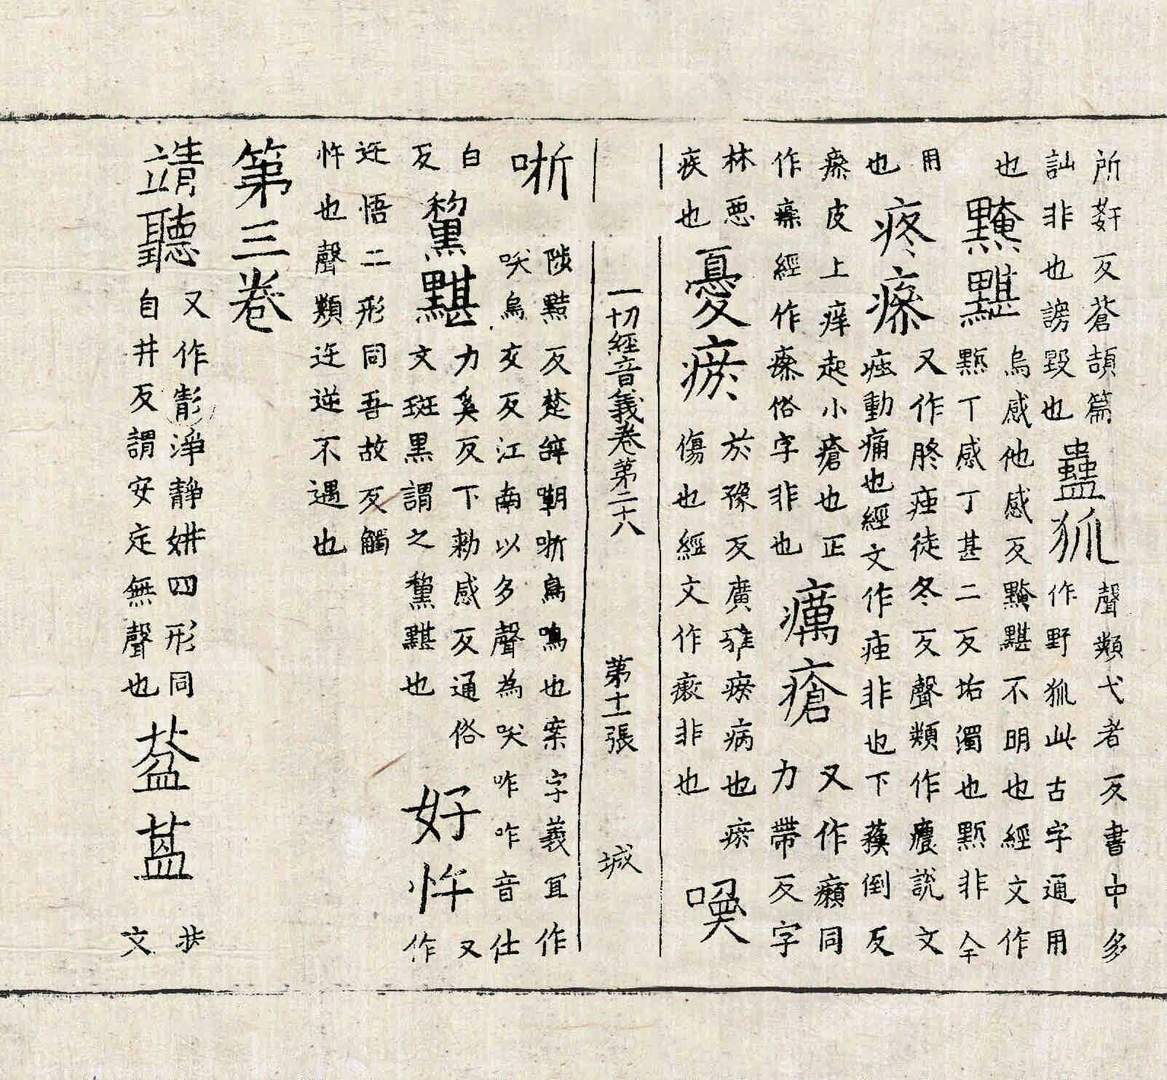 所姧反蒼頡篇
訕非也謗毀也
蠱狐
聲類弋者反書中多
作野狐此古字通用
也
黤黮
烏感他感反黤黮不明也經文作
黕丁感丁甚二反垢濁也黕非今
用
也
疼瘙
又作胮痋徒冬反聲類作癑說文
痋動痛也經文作疰非也下蘓倒反
瘙皮上痒起小瘡也正
作瘙經作瘵俗字非也
癘瘡
又作癩同
力帶反字
林惡
疾也
憂瘀
於豫反廣雅瘀病也瘀
傷也經文作瘷非也
㗛
一切經音義卷第二十八 第十一張 城
哳
陟黠反楚辝嘲哳鳥鳴也案字義冝作
㕭烏交反江南以多聲為㕭咋咋音仕
白
反
黧黮
力奚反下勅感反通俗
文斑黑謂之黧黮也
好忤
又
作
迕悟二形同吾故反觸
忤也聲類迕逆不遇也
第三卷
靖聽
又作彭淨靜妌四形同
自井反謂安定無聲也
葐葐
扶
文